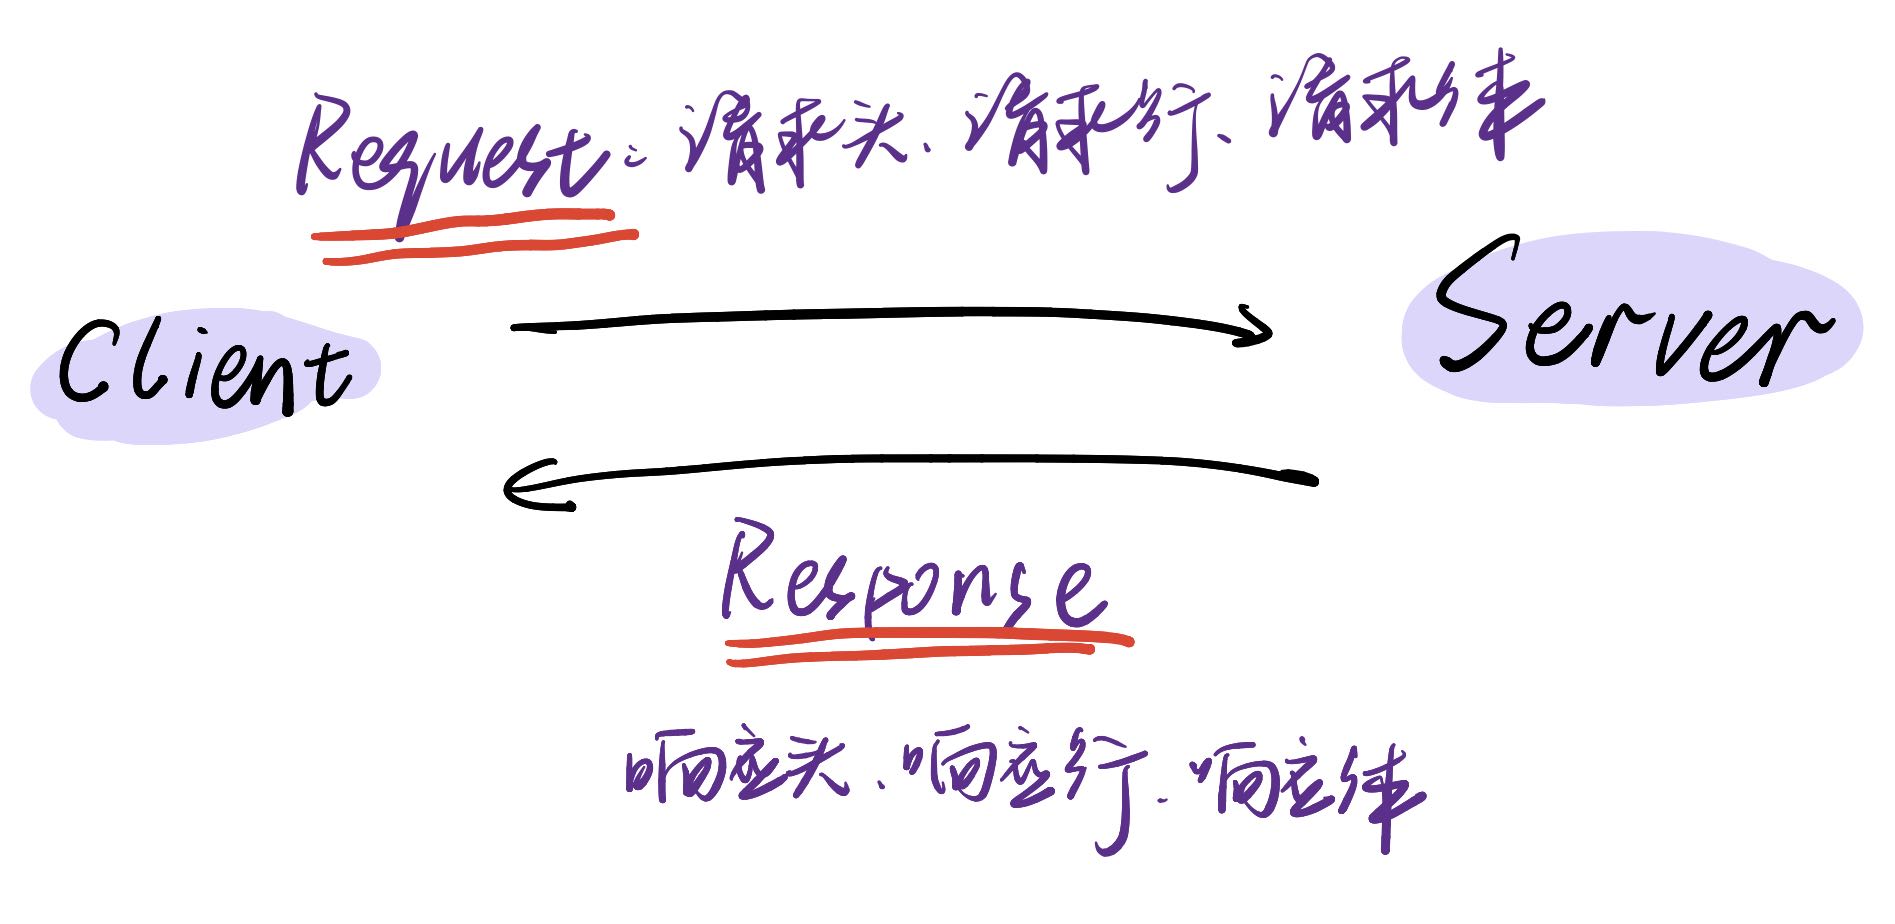 Request: 请求头、请求行、请求体
Client
Server
Response
响应头、响应行、响应体